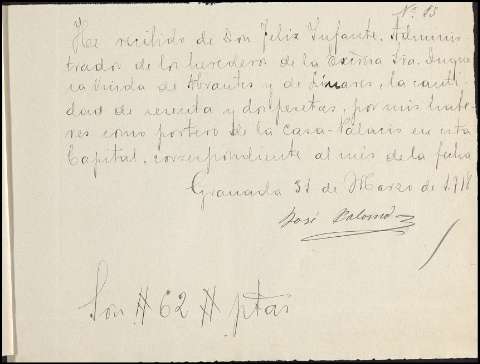 Nº 13
He recibido de Don Felix Infante, Adminis-
trador de los herederos de la Exema Sra. Duque
sa viuda de Abrantes y de Linares, la canti-
dad de sesenta y dos pesetas, por mis habe-
res como portero de la Casa-Palacio en esta
Capital, correspondiente al més de la fecha
Granada 31 de Marzo de 1918
José Palomo
Son # 62 # ptas